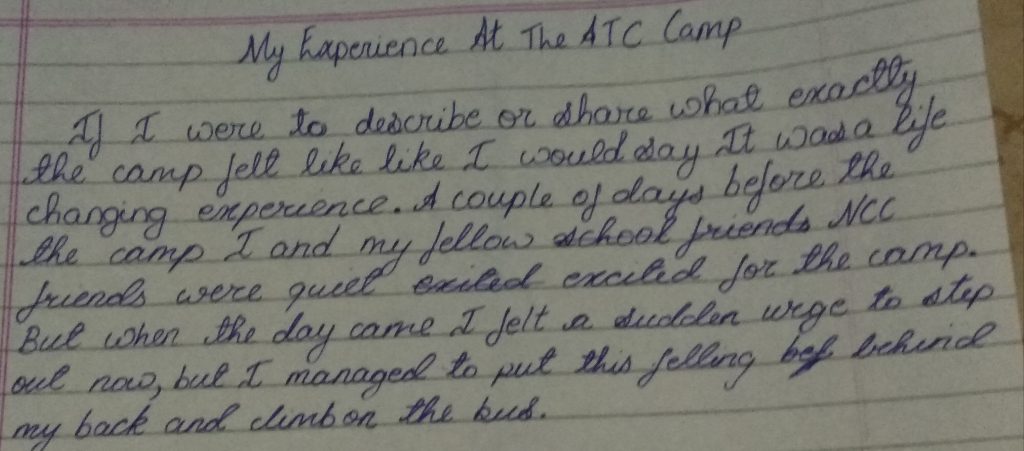 My Experience At The ATC Camp
If I were to describe or share what exactly
the camp felt like like I would say It was a life
changing experience. A couple of days before the
the camp I and my fellow school friends NCC
friends were quiet exited excited for the camp.
But when the day came I felt a sudden urge to step
out now, but I managed to put this felling bef behind
my back and climb on the bus.